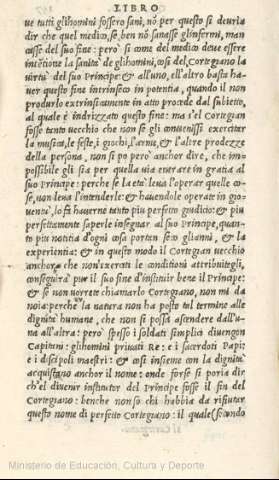 LIBRO
ue tutti gli homini fossero sani, nò per questo si deuria
dir che quel medico, se ben nō sanasse gli nfermi, man
casse del suo fine: però si come del medico deue essere
intētione la sanità de gli homini, così del Cortegiano la
uirtù del suo Principe: & all'uno, & l'altro basta ha-
uer questo fine intrinseco in potentia, quando il non
produrlo extrinsicamente in atto procede dal subietto,
al quale è indrizzato questo fine: ma s'el Cortegian
fosse tanto uecchio che non se gli conuenissi exercitar
la musica, le feste, i giochi, l'arme, & l'altre prodezze
della persona, non si po però anchor dire, che im-
possibile gli sia per quella uia entrare in gratia al
suo Principe: perche se la età leua l'operar quelle co-
se, non leua l'intenderle: & hauendole operate in gio
uentù, lo fà hauerne tanto piu perfetto giudicio: & piu
perfettamente saperle insegnar al suo Principe, quan-
to piu notitia d'ogni cosa portan seco gli anni, & la
experientia: & in questo modo il Cortegian uecchio
anchor che non exerciti le conditioni attribuitegli,
conseguirà pur il suo fine d'instituir bene il Principe:
& se non uorrete chiamarlo Cortegiano, non mi dà
noia: perche la natura non ha posto tal termine alle
dignità humane, che non si possa ascendere dall'u-
na all'altra: però spesso i soldati simplici diuengon
Capitani: gli homini priuati Re: e i sacerdoti Papi:
e i discipoli maestri: & così insieme con la dignità
acquistano anchor il nome: onde forse si poria dir
ch'el diuenir institutor del Principe fosse il fin del
Cortegiano: benche non so chi habbia da rifiutar
questo nome di perfetto Cortegiano: il quale (secondo
Ministerio de Educación, Cultura y Deporte